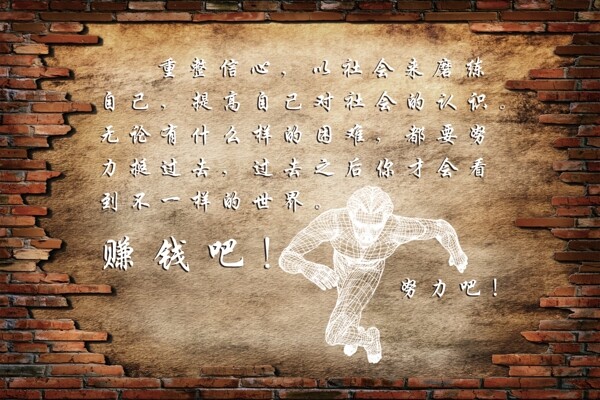 重整信心，以社会来磨练
自己，提高自己对社会的认识。
无论有什么样的困难，都要努
力挺过去，过去之后你才会看
到不一样的世界。
赚钱吧！
努力吧！